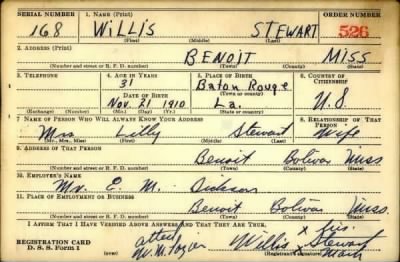 SERIAL NUMBER 1. NAME (Print) ORDER NUMBER
168 WILLIS STEWART 526
(First) (Middle) (Last)
2. ADDRESS (Print)
BENOIT MISS
(Number and street or R. F. D. number) (Town) (County) (State)
3. TELEPHONE 4. AGE IN YEARS 5. PLACE OF BIRTH 6. COUNTRY OF CITIZENSHIP
31 Baton Rouge
DATE OF BIRTH (Town or county)
Nov. 21 1910 La. U.S
(Exchange) (Number) (Mo.) (Day) (Yr.) (State or country)
7. NAME OF PERSON WHO WILL ALWAYS KNOW YOUR ADDRESS 8. RELATIONSHIP OF THAT PERSON
Mrs Lilly Stewart Wife
(Mr., Mrs., Miss) (First) (Middle) (Last)
9. ADDRESS OF THAT PERSON
Benoit Bolivar Miss
(Number and street or R. F. D. number) (Town) (County) (State)
10. EMPLOYER'S NAME
Mr. E. M. Dickson
11. PLACE OF EMPLOYMENT OR BUSINESS
Benoit Bolivar Miss.
(Number and street or R. F. D. number) (Town) (County) (State)
I AFFIRM THAT I HAVE VERIFIED ABOVE ANSWERS AND THAT THEY ARE TRUE.
REGISTRATION CARD attest Willis x his Stewart
D. S. S. Form 1 mark
(Registrant's signature)